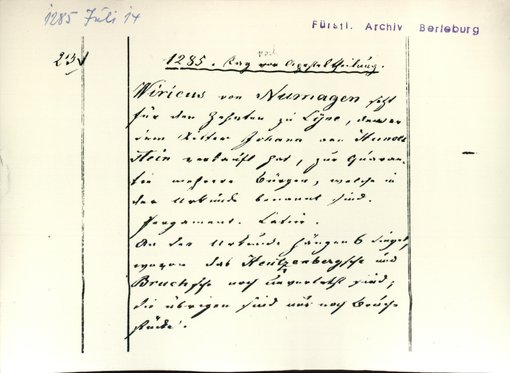 1285 Juli 14
Fürstl. Archiv Berleburg
23
1285. Tag vor Aposteltheilung.
Wiricus von Numagen setzt
für den Zehnten zu Lyne, den er
dem Ritter Johann von Hunolt-
stein verkauft hat, zur Guaran-
tie mehrere Bürgen, welche in
der Urkunde benannt sind.
Pergament. Latein.
An der Urkunde hängen 6 Siegel,
wovon das Hentzenbergsche und
Bruchsche noch unverletzt sind;
die übrigen sind nur noch Bruch-
stücke.